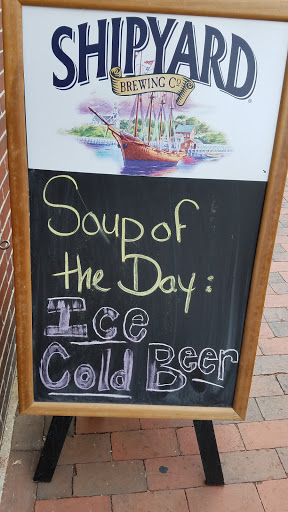 SHIPYARD
BREWING CO
Soup of
the Day:
Ice
Cold Beer